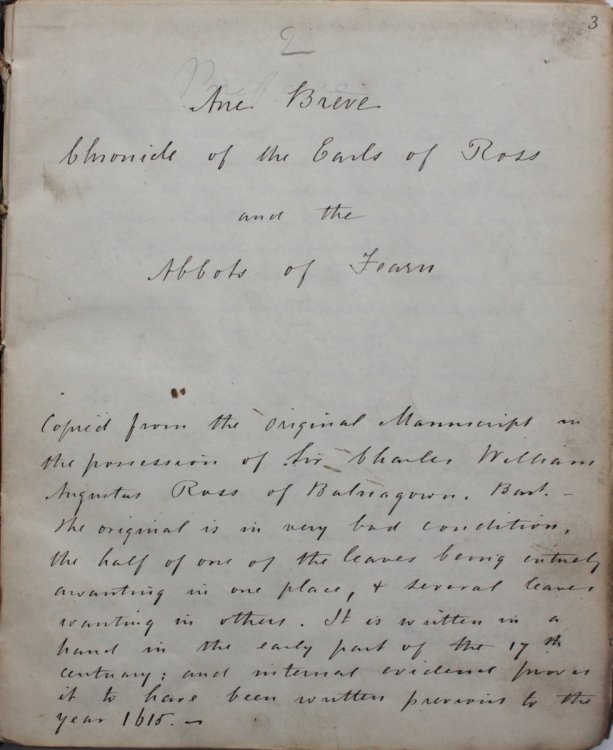 3
2
Ane Breve
Chronicle of the Earls of Ross
and the
Abbots of Fearn
Copied from the original Manuscript in
the possession of Sir Charles William
Augustus Ross of Balnagown, Bart. –
The original is in very bad condition,
the half of one of the leaves being entirely
awanting in one place, & several leaves
wanting in others. It is written in a
hand in the early part of the 17th
century; and internal evidence proves
it to have been written previous to the
year 1615. –